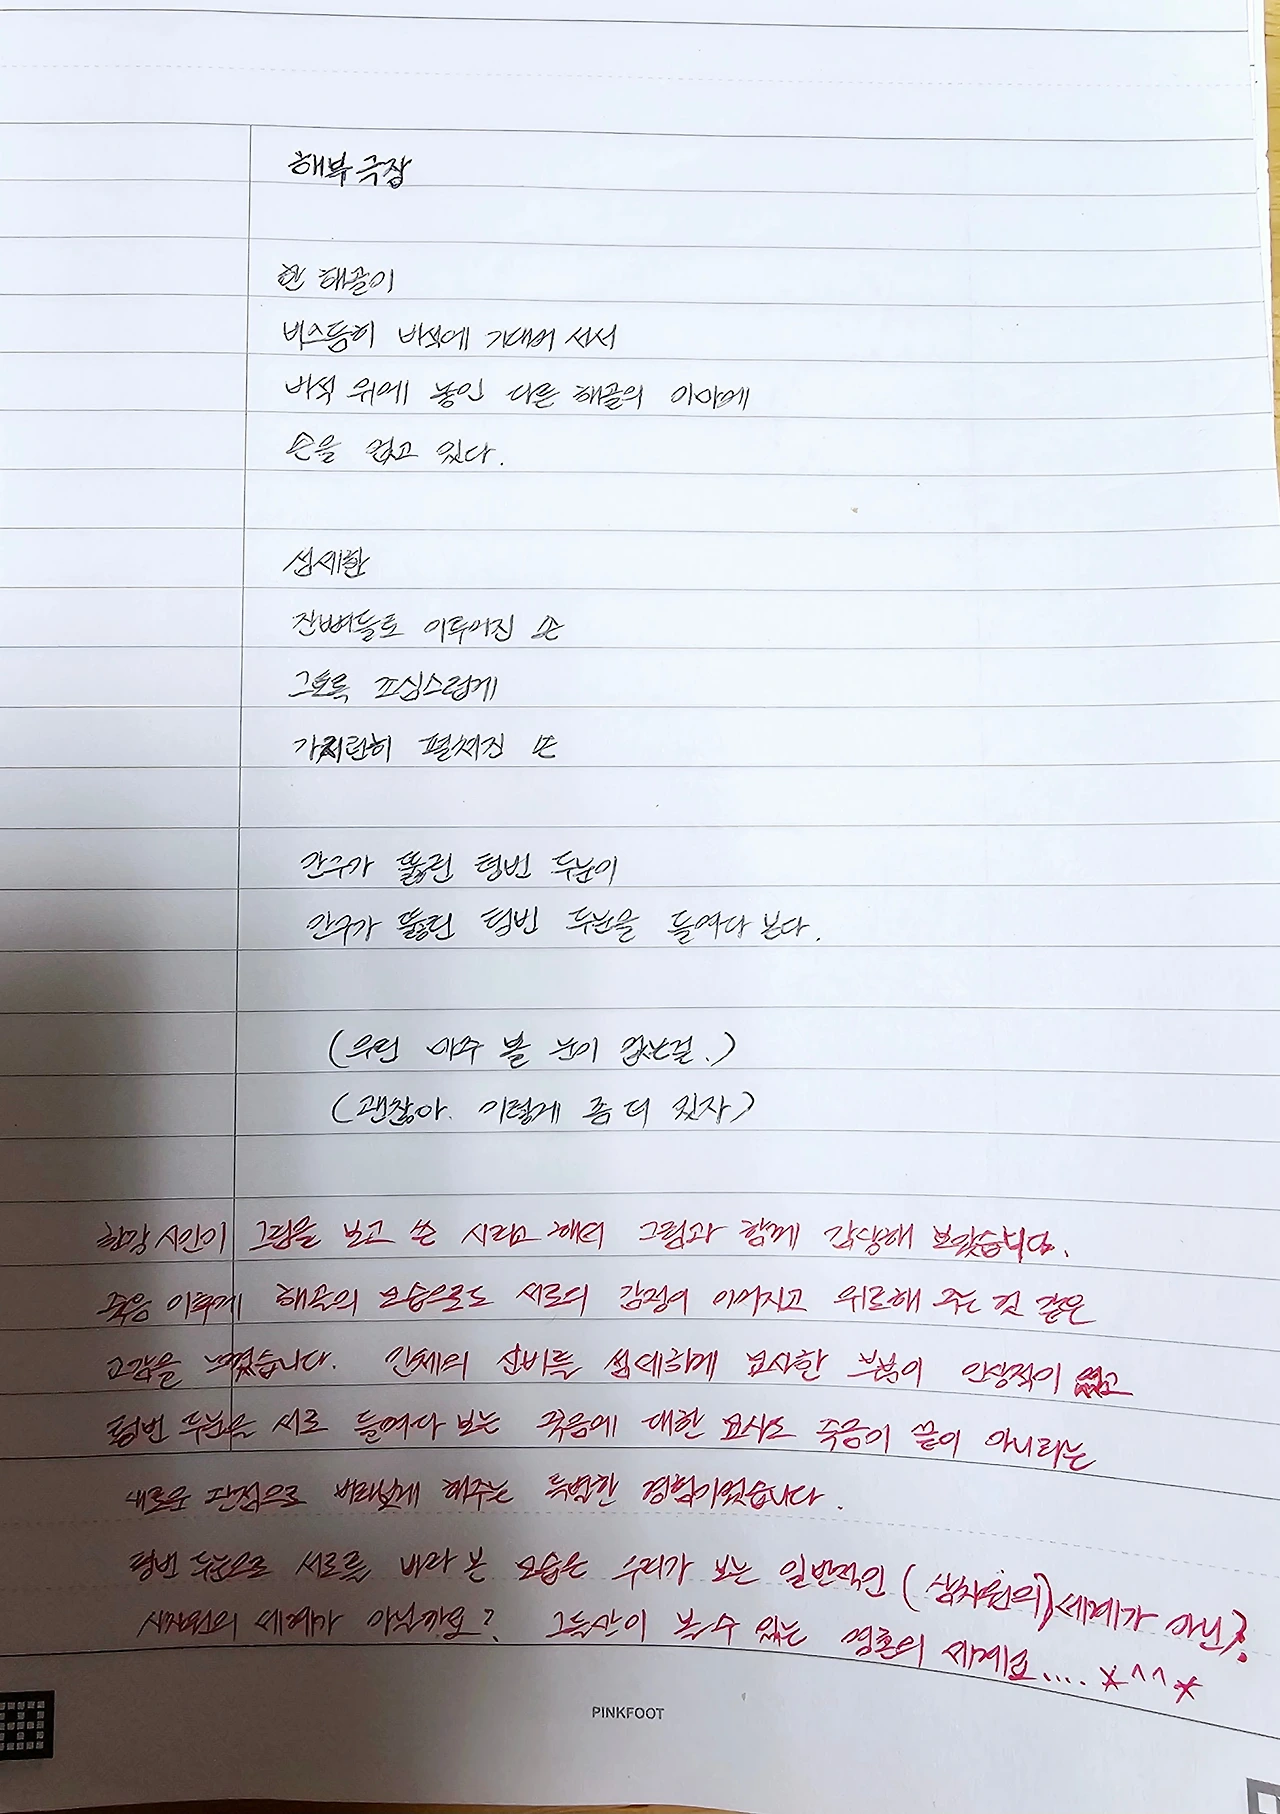 해부극장
한 해골이
비스듬히 비석에 기대어 서서
비석 위에 놓인 다른 해골의 이마에
손을 얹고 있다.
섬세한
잔뼈들로 이루어진 손
그토록 조심스럽게
가지런히 펼쳐진 손
안구가 뚫린 텅빈 두눈이
안구가 뚫린 텅빈 두눈을 들여다 본다.
(우린 마주 볼 눈이 없는걸.)
(괜찮아. 이렇게 좀 더 있자)
한강 시인이 그림을 보고 쓴 시라고 해서 그림과 함께 감상해 보았습니다.
죽음 이후에 해골의 모습으로도 서로의 감정이 이어지고 위로해 주는 것 같은
교감을 느꼈습니다. 인체의 신비를 섬세하게 묘사한 부분이 인상적이었고
텅빈 두눈을 서로 들여다 보는 죽음에 대한 묘사도 죽음이 끝이 아니라는
새로운 관점으로 바라보게 해주는 특별한 경험이었습니다.
텅빈 두눈으로 서로를 바라 본 모습은 우리가 보는 일반적인 (삼차원의)세계가 아닌?
사차원의 세계가 아닐까요? 그들만이 볼 수 있는 영혼의 세계요.... *^^*
PINKFOOT